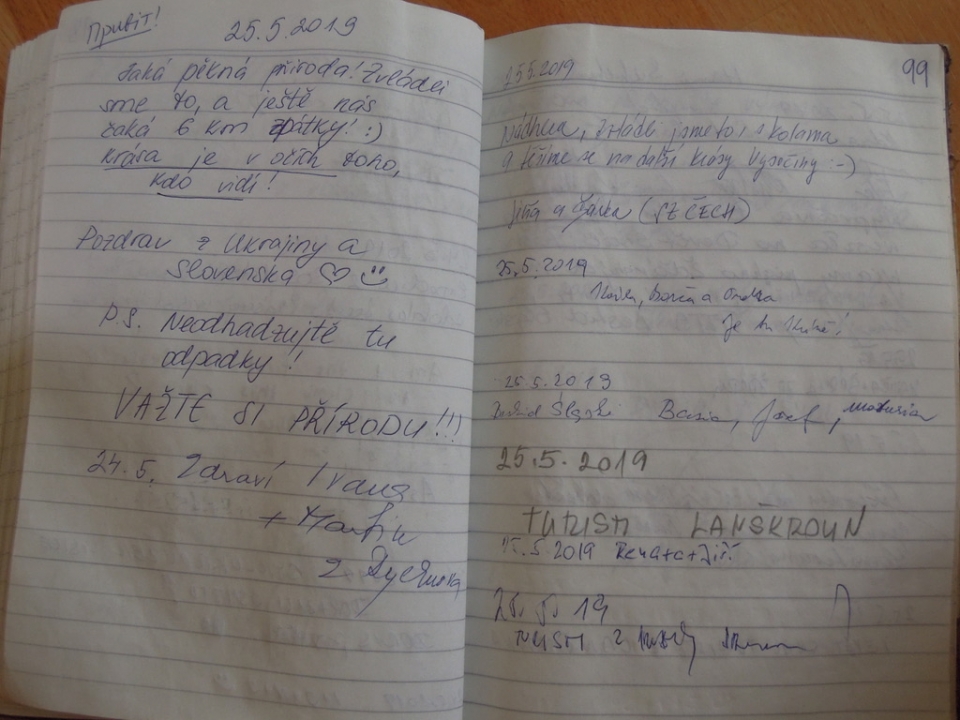 Привіт!
25.5.2019
Jaká pěkná příroda! Zvládli
sme to, a ještě nás
čaká 6 km zpátky! :)
krása je v očích toho,
kdo vidí!
Pozdrav z Ukrajiny a
Slovenska ♡ ☺
P.S. Neodhadzujte tu
odpadky!
VAŽTE SI PŘÍRODU!!!
24.5. Zdraví Ivana
+ Martin
z
99
25.5.2019
Nádhera, zvládli jsme to i s kolama
a těšíme se na další krásy Vysočiny :-)
a Šárka (SZ ČECH)
25.5.2019
a Ondra
Je tu
25.5.2019
Josef,
25.5.2019
TURISTI LANŠKROUN
25.5.2019 Renata+Jiří
25.5.19
TURISTI z